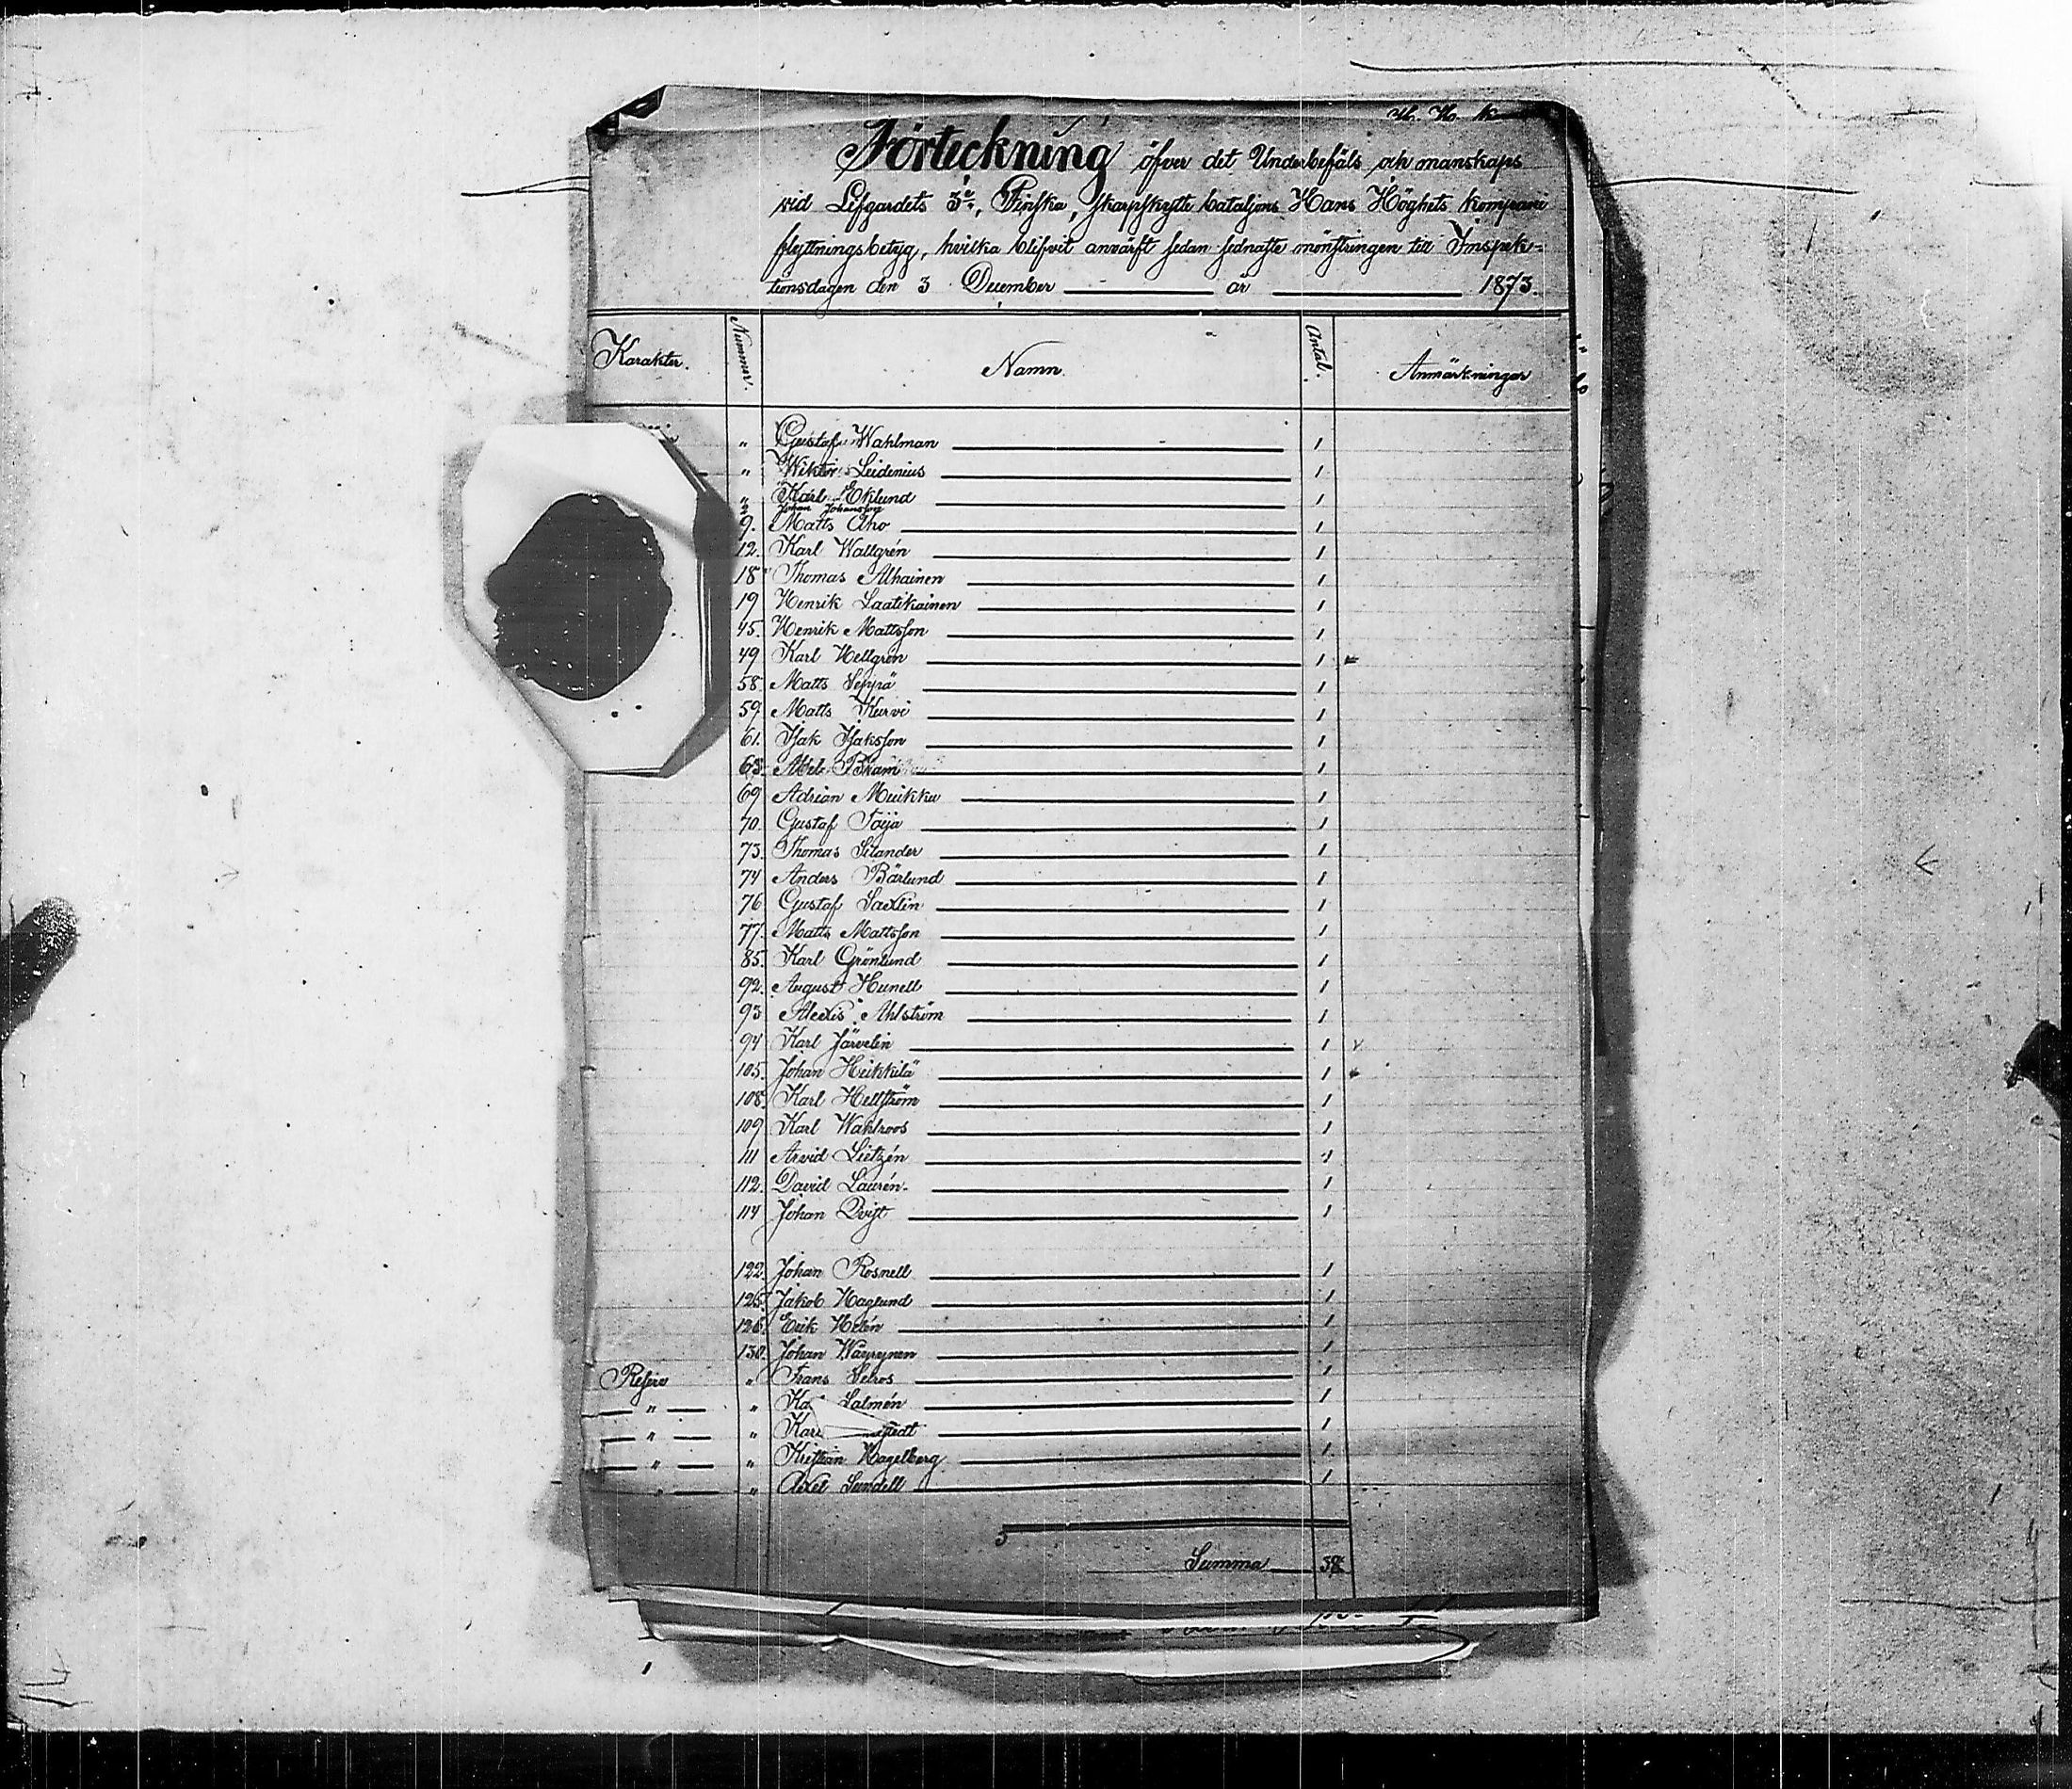 H. H. k
Förteckning öfver det Underbefäls och manskaps
vid Lifgardets 3e, Finska, skarpskytte bataljons Hans Höghets kompani
flyttningsbetyg, hvilka blifvit anvärft sedan sednaste mönstringen till Inspek-
tionsdagen den 3 December år 1873.
Karakter. Nummer. Namn. Antal. Anmärkningar
" Gustaf Wahlman 1
" Wiktor Leidenius 1
" Karl Eklund 1
Johan Johansson
9. Matts Aho 1
12. Karl Wallgrén 1
18 Thomas Alhainen 1
19 Henrik Laatikainen 1
45. Henrik Mattsson 1
49 Karl Hellgren 1
58. Matts Seppä 1
59 Matts Kurvi 1
61. Isak Isaksson 1
63. Bram 1
69 Adrian Muikku 1
70. Gustaf Toija 1
73. Thomas Silander 1
74 Anders Bärlund 1
76 Gustaf Saxlin 1
77. Matts Mattsson 1
85. Karl Grönlund 1
92. August Hunell 1
93 Alexis Ahlström 1
94 Karl Järvelin 1
105. Johan Heikkilä 1
108. Karl Hellström 1
109 Karl Wahlroos 1
111 Arvid Lietzén 1
112. David Laurén 1
114 Johan Qvist 1
122. Johan Rosnell 1
125. Jakob Haglund 1
128. Erik Helén 1
130. Johan Wäyrynen 1
Reserv " Frans Selros 1
" " Ka Salmén 1
" " Kar stedt 1
" " Kristian Hagelberg 1
" " Axel Sundell 1
Summa 38